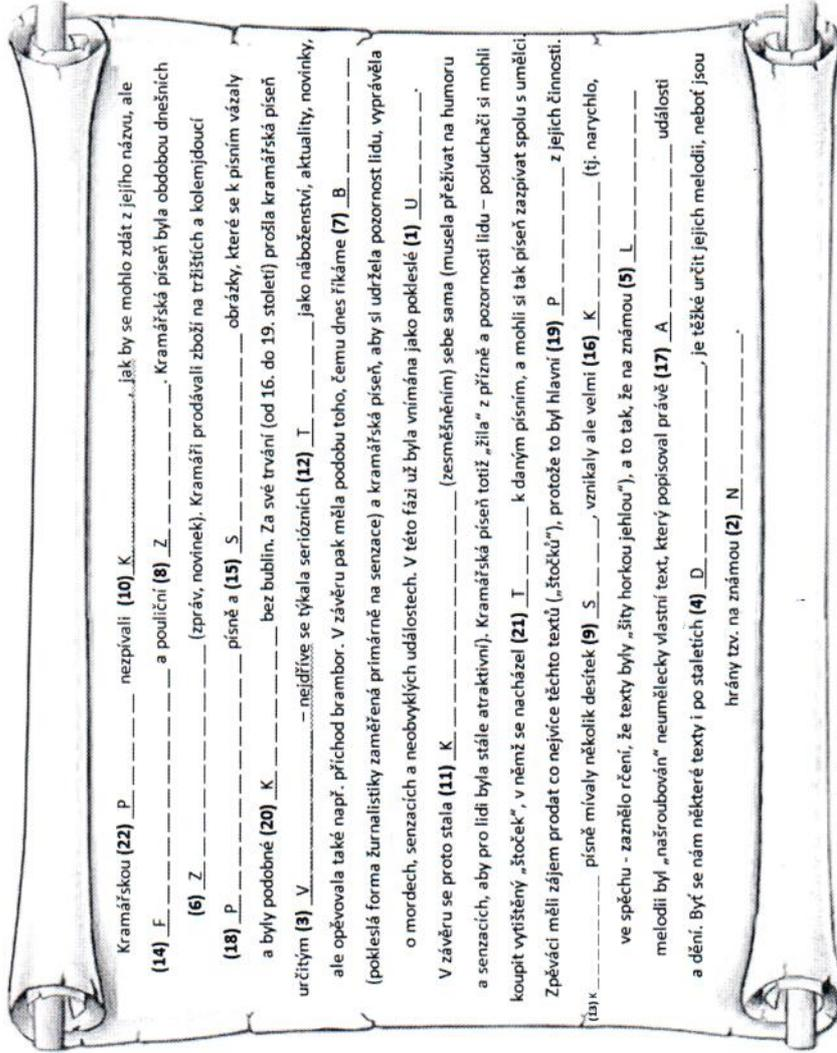 Kramářskou (22) P _ _ _ _ _ _ nezpívali (10) K _ _ _ _ _ _ _ _, jak by se mohlo zdát z jejího názvu, ale
(14) F _ _ _ _ _ _ _ _ _ _ _ a pouliční (8) Z _ _ _ _ _ _ _. Kramářská píseň byla obdobou dnešních
(6) Z _ _ _ _ _ _ _ _ _ _ _ (zpráv, novinek). Kramáři prodávali zboží na tržištích a kolemjdoucí
(18) P _ _ _ _ _ _ _ _ písně a (15) S _ _ _ _ _ _ _ obrázky, které se k písním vázaly
a byly podobné (20) K _ _ _ _ _ _ _ _ bez bublin. Za své trvání (od 16. do 19. století) prošla kramářská píseň
určitým (3) V _ _ _ _ _ _ _ – nejdříve se týkala seriózních (12) T _ _ _ _ _ jako náboženství, aktuality, novinky,
ale opěvovala také např. příchod brambor. V závěru pak měla podobu toho, čemu dnes říkáme (7) B _ _ _ _ _ _
(pokleslá forma žurnalistiky zaměřená primárně na senzace) a kramářská píseň, aby si udržela pozornost lidu, vyprávěla
o mordech, senzacích a neobvyklých událostech. V této fázi už byla vnímána jako pokleslé (1) U _ _ _ _ _.
V závěru se proto stala (11) K _ _ _ _ _ _ _ _ _ _ _ (zesměšněním) sebe sama (musela přežívat na humoru
a senzacích, aby pro lidi byla stále atraktivní). Kramářská píseň totiž „žila“ z přízně a pozornosti lidu – posluchači si mohli
koupit vytištěný „štoček“, v němž se nacházel (21) T _ _ _ _ k daným písním, a mohli si tak píseň zazpívat spolu s umělci.
Zpěváci měli zájem prodat co nejvíce těchto textů („štočků“), protože to byl hlavní (19) P _ _ _ _ _ z jejich činnosti.
(13) K _ _ _ _ _ _ _ _ písně mívaly několik desítek (9) S _ _ _ _, vznikaly ale velmi (16) K _ _ _ _ _ _ (tj. narychlo,
ve spěchu - zaznělo rčení, že texty byly „šity horkou jehlou“), a to tak, že na známou (5) L _ _ _ _ _ _ _
melodii byl „našroubován“ neumělecky vlastní text, který popisoval právě (17) A _ _ _ _ _ _ _ _ události
a dění. Byť se nám některé texty i po staletích (4) D _ _ _ _ _ _ _ _, je těžké určit jejich melodii, neboť jsou
hrány tzv. na známou (2) N _ _ _ _ _ _.